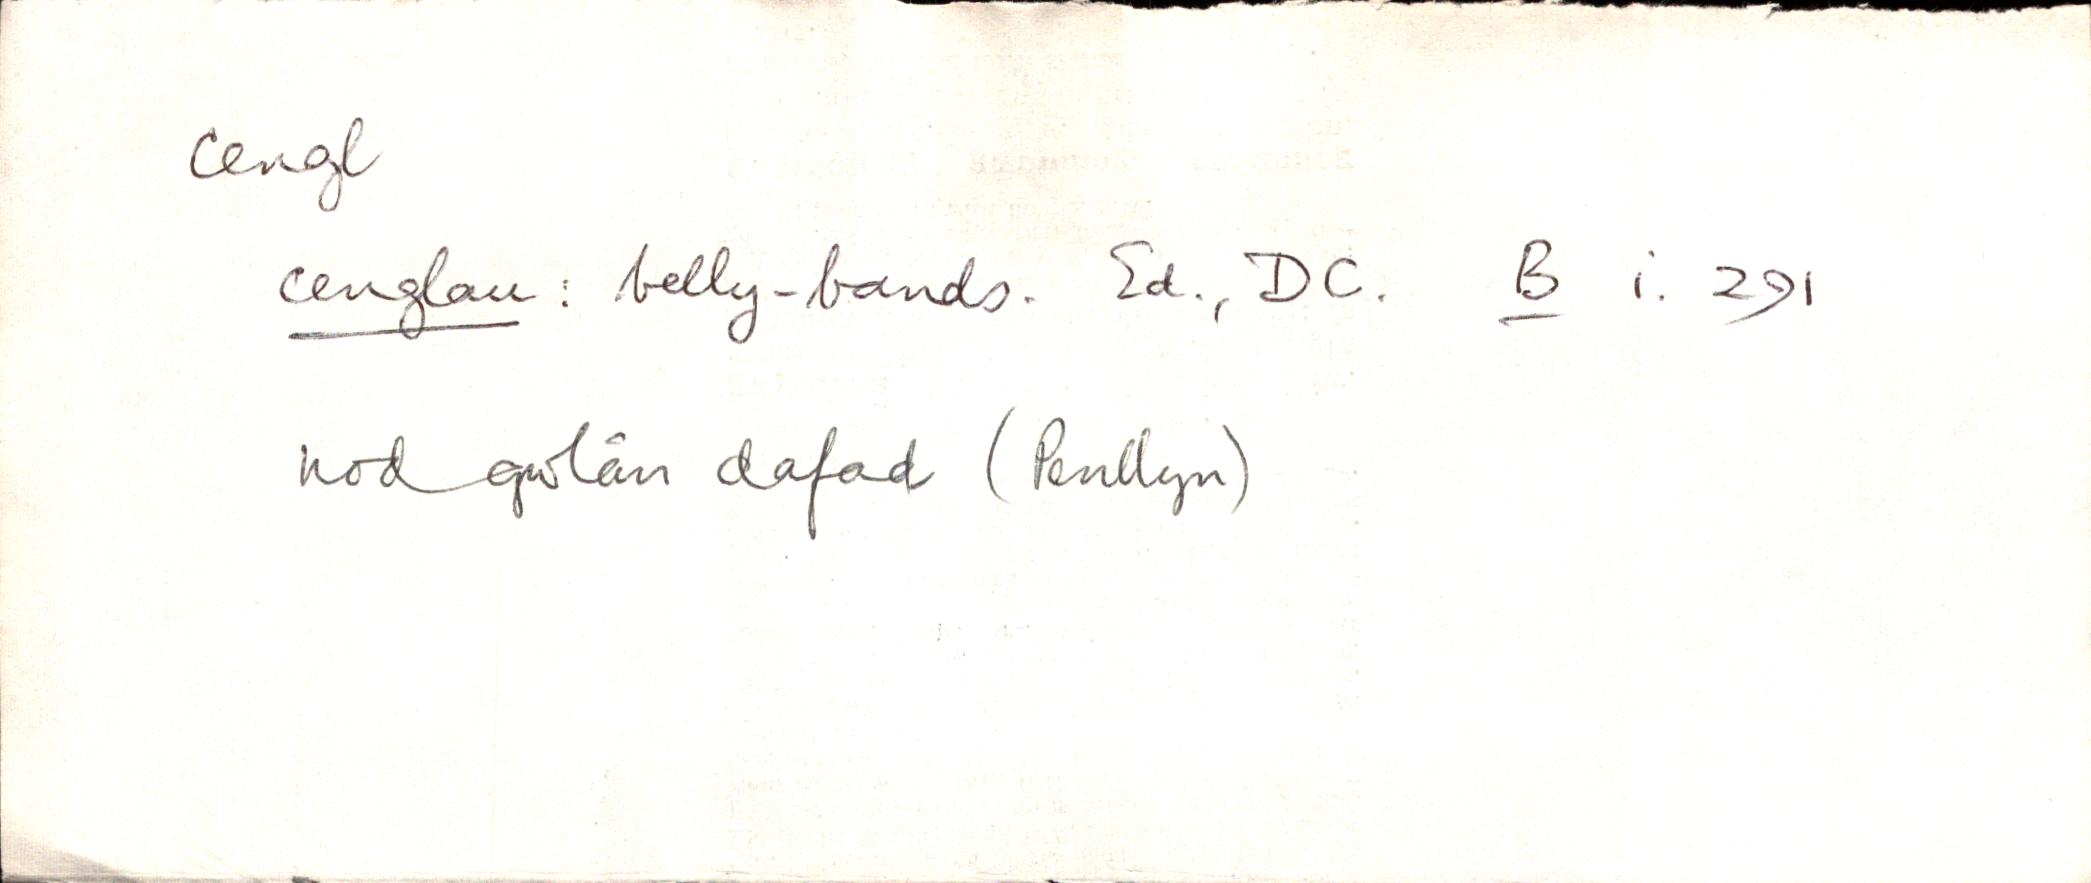 cengl
cenglau: belly-bands. Ed., DC. B i. 291
nod gwlân dafad (Penllyn)